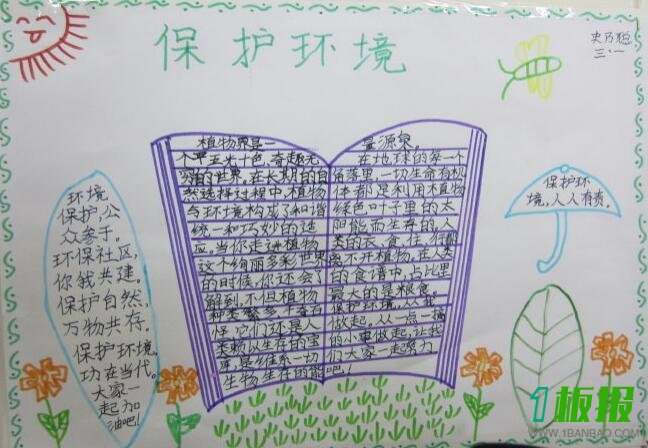 保护环境
史乃聪
三.一
环境
保护,公
众参于。
环保社区,
你我共建。
保护自然,
万物共存。
保护环境,
功在当代。
大家一
起加
油吧!
植物界是一
个五光十色、奇趣无
穷的世界。在长期的自
然选择过程中,植物
与环境构成了和谐
统一和巧妙的适
应。当你走进植物
这个绚丽多彩世界
的时候,你还会了
解到,不但植物
种类繁多,千奇百
怪,它们还是人
类赖以生存的宝
库,是维系一切
生物生存的能
量源泉。
在地球的每一个
角落里,一切生命有机
体都是利用植物
绿色叶子里的太
阳能而生存的。人
类的衣、食、住、行都
离不开植物,在人类
的食谱中,占比里
最大的是粮食。
保护环境,从我
做起。从一点一滴
的小事做起,让我
们大家一起努力
吧!
保护环
境,人人有责。
1板报
WWW.1BANBAO.COM